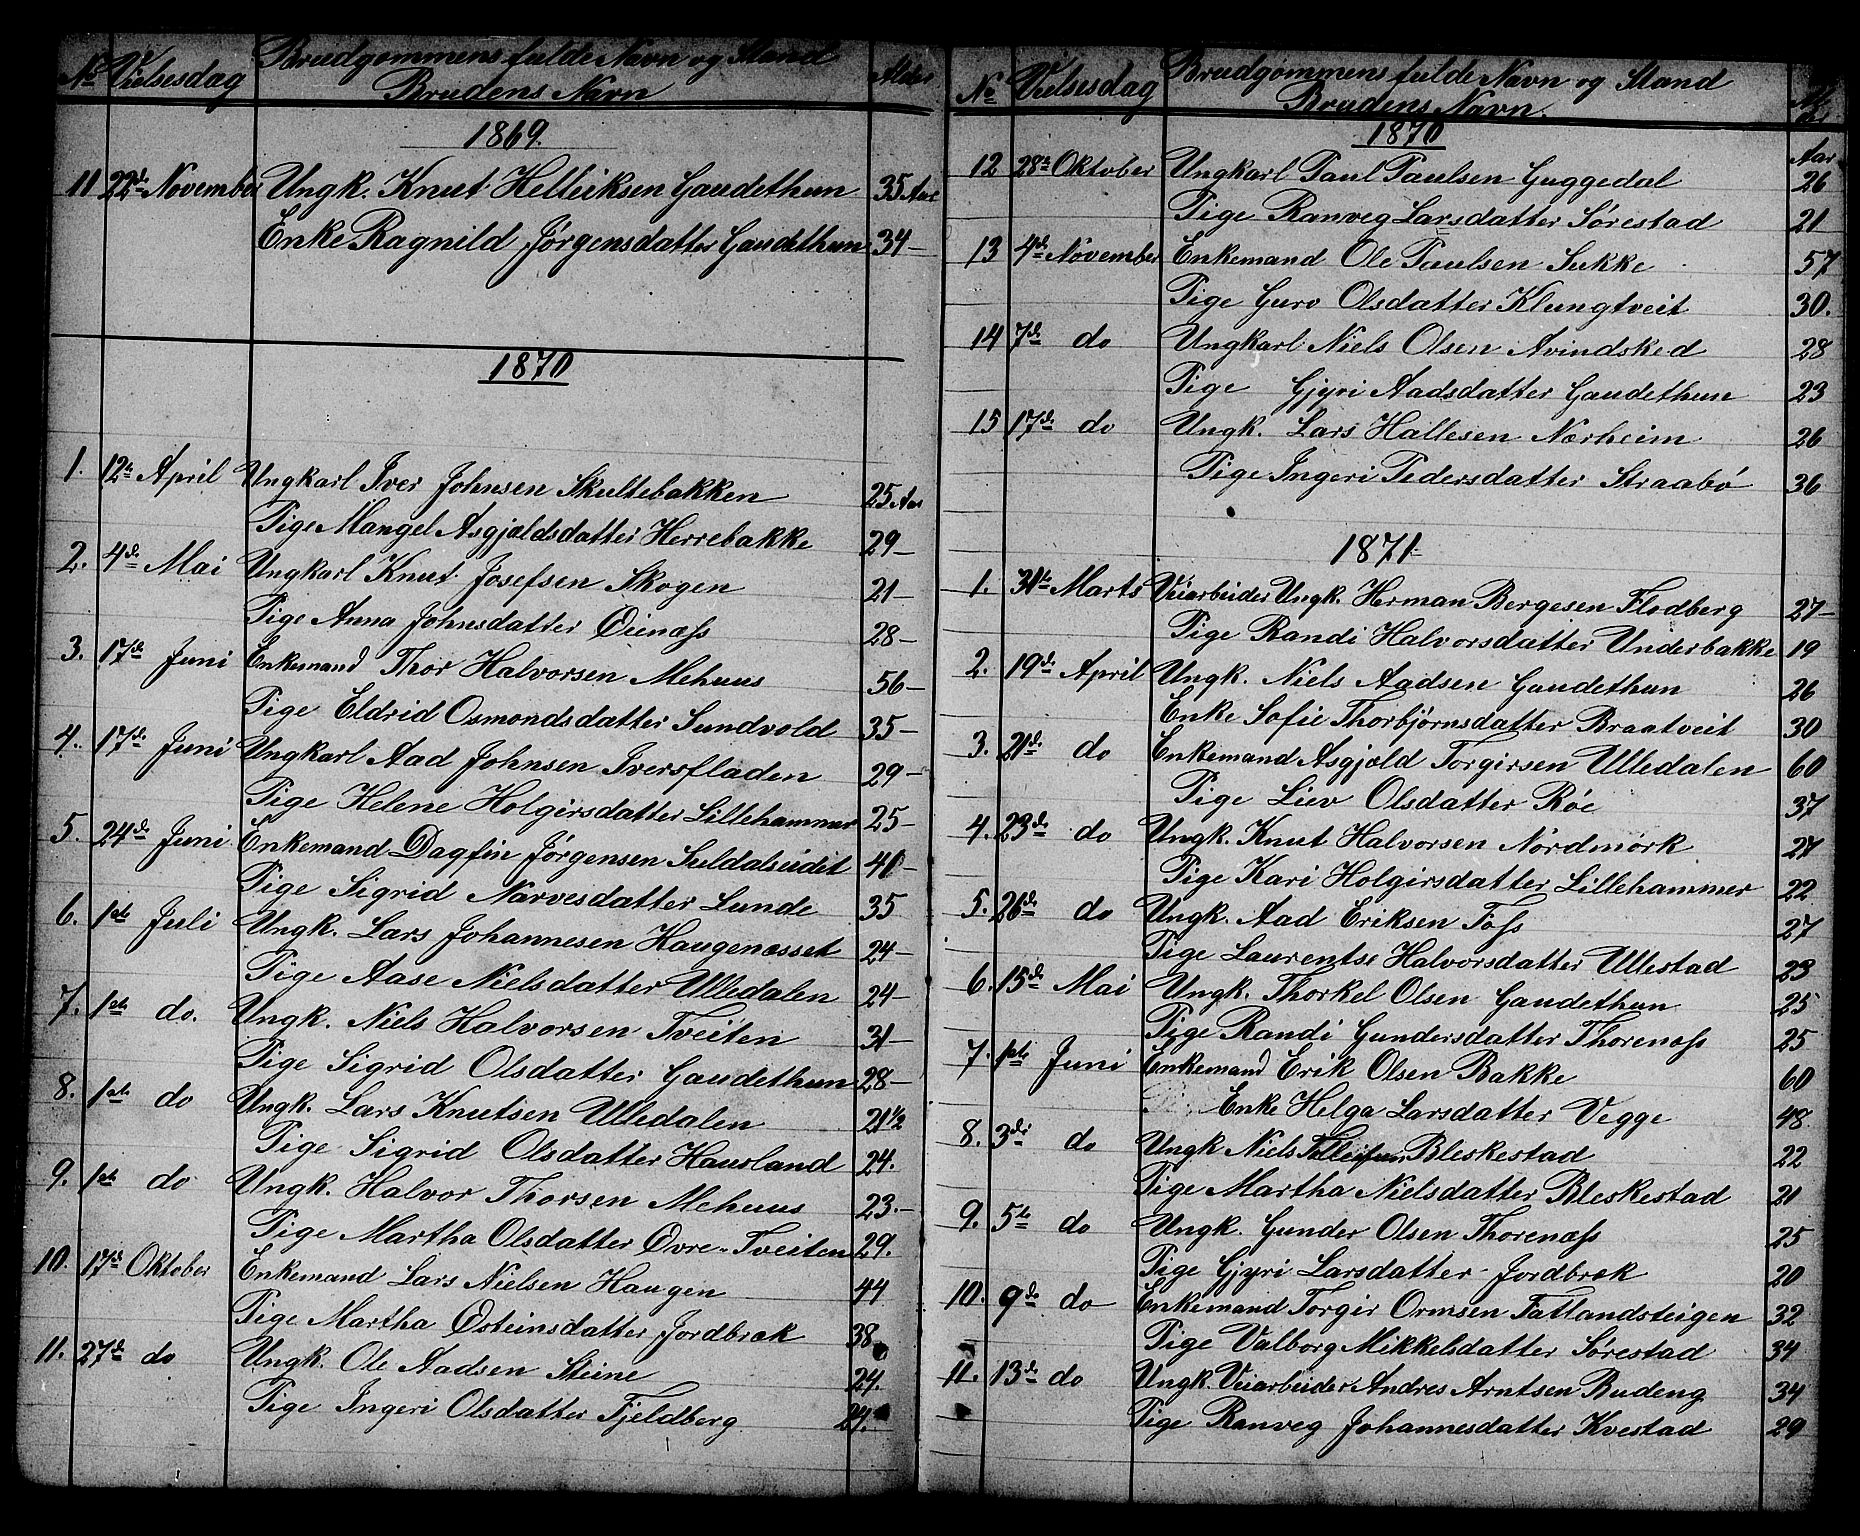 No Vielsesdag Brudgommens fulde Navn og Stand Alder
Brudens Navn
1869.
11 22de November Ungk. Knut Helleiksen Gaudethun 35 Aar
Enke Ragnild Jørgensdatter Gaudethun 34 –
1870
1. 12te April Ungkarl Iver Johnsen Skultebakken 25 Aar
Pige Mangel Asgjældsdatter Herrebakke 29 –
2. 4de Mai Ungkarl Knut Josefsen Skogen 21 –
Pige Anna Johnsdatter Øienæss 28 –
3. 17de Juni Enkemand Thor Halvorsen Mehuus 56 –
Pige Eldrid Osmondsdatter Sundvold 35 –
4. 17de Juni Ungkarl Aad Johnsen Iversfladen 29 –
Pige Helene Holgirsdatter Lillehammer 25 –
5. 24de Juni Enkemand Dagfin Jørgensen Suldalseidet 41 –
Pige Sigrid Narvesdatter Lunde 35
6. 1ste Juli Ungk. Lars Johannesen Haugenæsset 24 –
Pige Aase Nielsdatter Ulledalen 24 –
7. 1ste do. Ungk. Niels Halvorsen Tveiten 31 –
Pige Sigrid Olsdatter Gaudethun 28 –
8. 1ste do Ungk. Lars Knutsen Ulledalen 21 1/2
Pige Sigrid Olsdatter Hausland 24.
9. 1ste do Ungk. Halvor Thorsen Mehuus 23. –
Pige Martha Olsdatter Øvre-Tveiten 29.
10. 17de Oktober Enkemand Lars Nielsen Haugen 44
Pige Martha Østeinsdatter Jordbræk 38
11. 27de do Ungk. Ole Aadsen Steine 24.
Pige Ingeri Olsdatter Fjeldberg 24.
No Vielsesdag Brudgommens fulde Navn og Stand
Brudens Navn.
1870
Aar
12 28de Oktober Ungkarl Paul Paulsen Guggedal 26
Pige Ranveg Larsdatter Sørestad 21
13 4de November Enkemand Ole Paulsen Sukke 57
Pige Guro Olsdatter Klungtveit 30.
14 7de do Ungkarl Niels Olsen Avindsked 28
Pige Gjyri Aadsdatter Gaudethun 23
15 17de do Ungk. Lars Hallesen Nærheim 26
Pige Ingeri Pedersdatter Straabø 36
1871.
1. 31te Marts Veiarbeider Ungk. Herman Bergesen Flodberg 27 –
Pige Randi Halvorsdatter Underbakke 19
2. 19de April Ungk. Niels Aadsen Gaudethun 26
Enke Sofie Thorbjørnsdatter Braatveit 30
3. 21de do Enkemand Asgjæld Torgirsen Ulledalen 60
Pige Liev Olsdatter Røe 37
4. 23de do Ungk. Knut Halvorsen Nordmork 27
Pige Kari Holgirsdatter Lillehammer 22
5. 26de do Ungk. Aad Eriksen Foss 27
Pige Laurentse Halvorsdatter Ullestad 23
6. 15de Mai Ungk. Thorkel Olsen Gaudethun 25
Pige Randi Gundersdatter Thorenæss 25
7. 1ste Juni Enkemand Erik Olsen Bakke 60
Enke Helga Larsdatter Vegge 48
8. 3die do Ungk Niels Bleskestad 22
Pige Martha Nielsdatter Bleskestad 21
9. 5te do Ungk. Gunder Olsen Thorenæss 25
Pige Gjyri Larsdatter Jordbræk 20
10. 9de do Enkemand Torgir Ormsen Fatlandsteigen 32
Pige Valborg Mikkelsdatter Sørestad 34
11. 13de do Ungk. Veiarbeider Andres Arntsen Budeng 34
Pige Ranveg Johannesdatter Kvestad 29